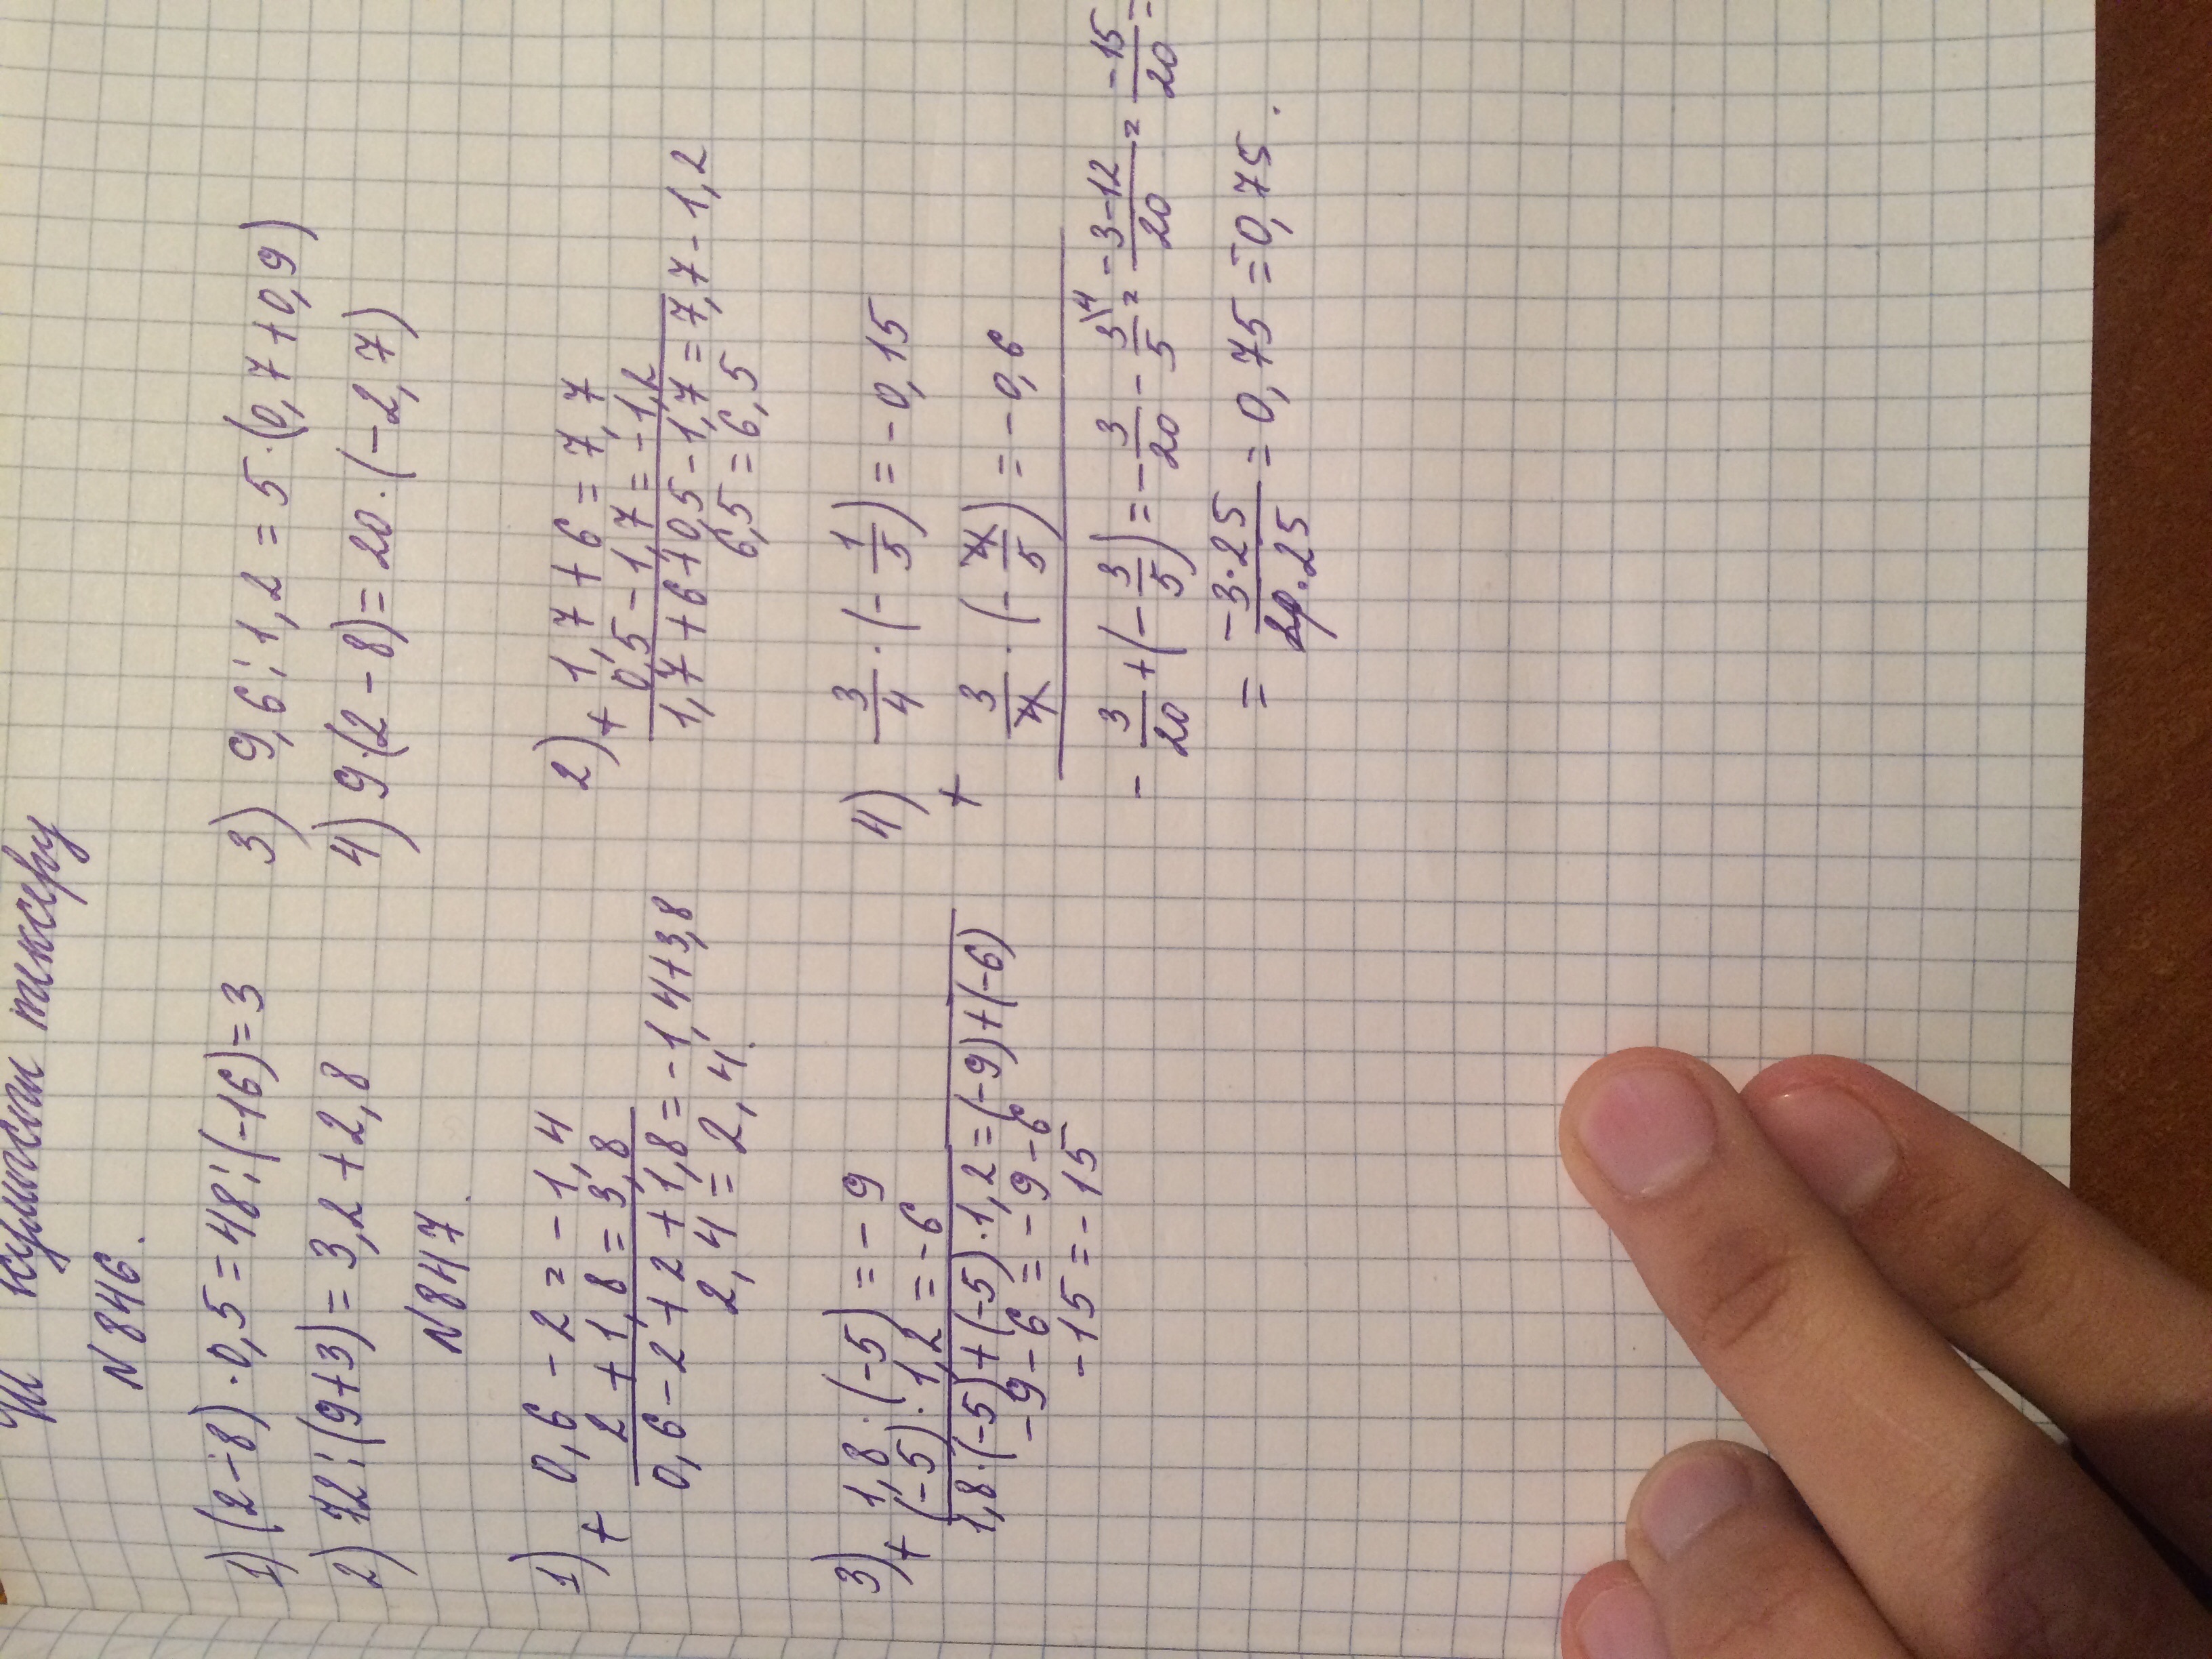 тиксеру
N 846.
1) (2-8)·0,5=48:(-16)=3
2) 72:(9+3)=3,2+2,8
3) 9,6:1,2=5·(0,7+0,9)
4) 9·(2-8)=20·(-2,7)
N 847.
1) 0,6-2=-1,4
+ 2+1,8=3,8
0,6-2+2+1,8=-1,4+3,8
2,4=2,4.
2) 1,7+6=7,7
+ 0,5-1,7=-1,2
1,7+6+0,5-1,7=7,7-1,2
6,5=6,5
3) 1,8·(-5)=-9
+ (-5)·1,2=-6
1,8·(-5)+(-5)·1,2=(-9)+(-6)
-9-6=-9-6
-15=-15
4) 3/4·(-1/5)=-0,15
+ 3/4·(-4/5)=-0,6
-3/20+(-3/5)=-3/20-3\4/5=-3-12/20=-15/20=
=-3·25/20·25=0,75=-0,75.